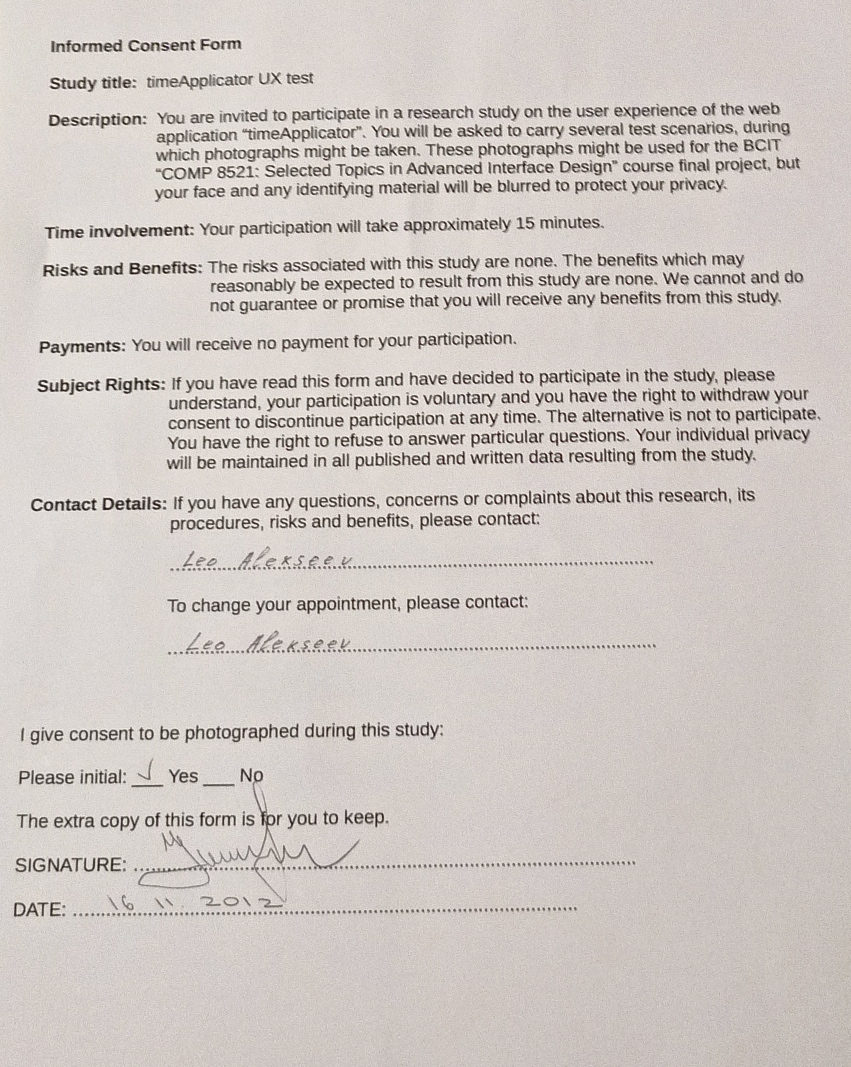 Informed Consent Form
Study title: timeApplicator UX test
Description: You are invited to participate in a research study on the user experience of the web
application “timeApplicator”. You will be asked to carry several test scenarios, during
which photographs might be taken. These photographs might be used for the BCIT
“COMP 8521: Selected Topics in Advanced Interface Design” course final project, but
your face and any identifying material will be blurred to protect your privacy.
Time involvement: Your participation will take approximately 15 minutes.
Risks and Benefits: The risks associated with this study are none. The benefits which may
reasonably be expected to result from this study are none. We cannot and do
not guarantee or promise that you will receive any benefits from this study.
Payments: You will receive no payment for your participation.
Subject Rights: If you have read this form and have decided to participate in the study, please
understand, your participation is voluntary and you have the right to withdraw your
consent to discontinue participation at any time. The alternative is not to participate.
You have the right to refuse to answer particular questions. Your individual privacy
will be maintained in all published and written data resulting from the study.
Contact Details: If you have any questions, concerns or complaints about this research, its
procedures, risks and benefits, please contact:
Leo Alekseev
To change your appointment, please contact:
Leo Alekseev
I give consent to be photographed during this study:
Please initial: ✓ Yes ___ No
The extra copy of this form is for you to keep.
SIGNATURE:
DATE: 16 11. 2012